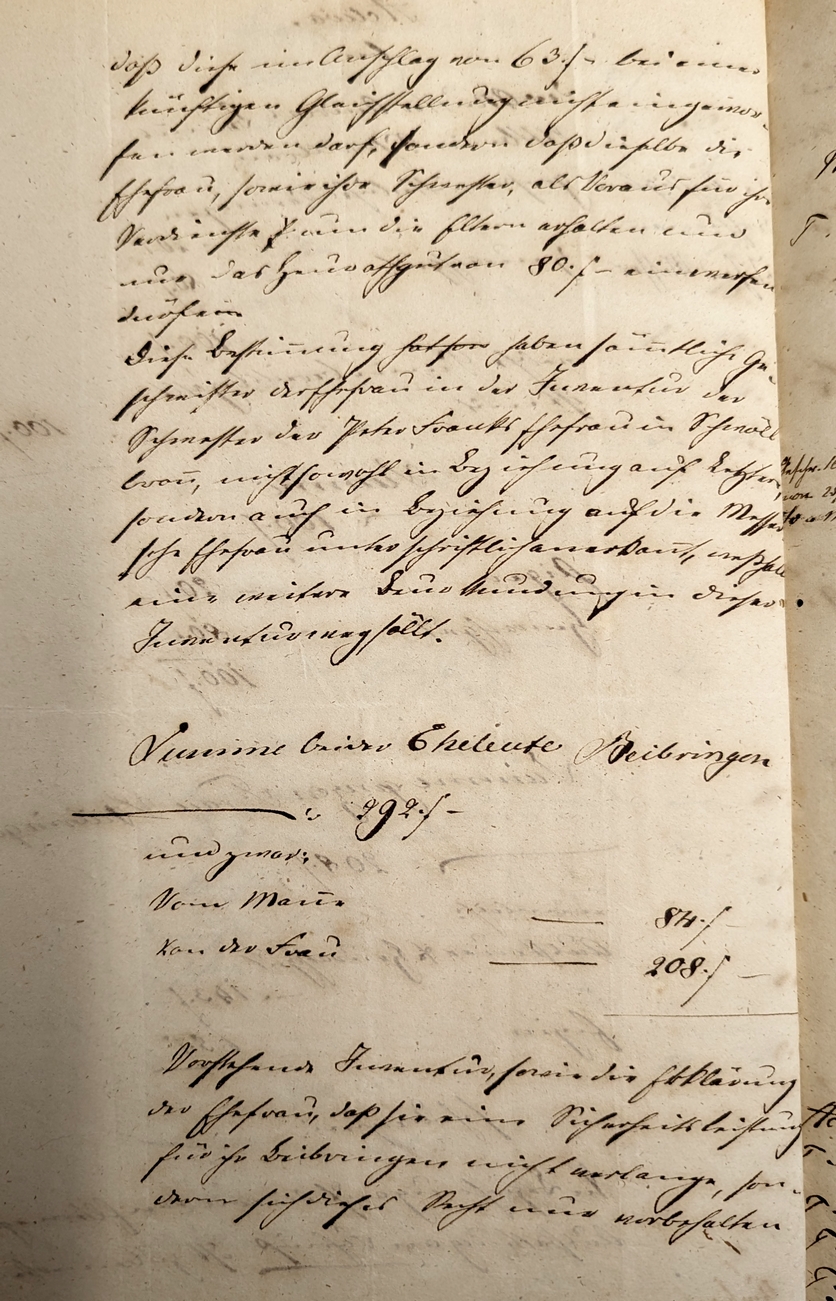 daß diese im Anschlag von 63 f - bei einer
künftigen Gleichstellung nicht eingewor-
fen werden darf, sondern daß dieselbe die
Ehefrau, sowie ihre Schwester, als Voraus für ihre
Verdienste um die Eltern erhalten und
nur das Heurathgut von 80 f - einwerfen
dürfen
Diese Bestimmung haben sämtliche Ge-
schwister der Ehefrau in der Inventur der
Schwester der Peter Franks Ehefrau in Schmöll
bronn, nicht sowohl in Beziehung auf Letztere
sondern auch in Beziehung auf die
sche Ehefrau unterschriftlich anerkannt, weßhalb
eine weitere Beurkundung in dieser
Inventur wegfällt.
Summe beider Eheleute Beibringen
292 f -
und zwar:
Vom Manne
84 f -
Von der Frau
208 f -
Vorstehende Inventur, sowie die Erklärung
der Ehefrau, daß sie eine Sicherheitsleistung
für ihr Beibringen nicht verlange, son-
dern sich dieses Recht nur vorbehalten